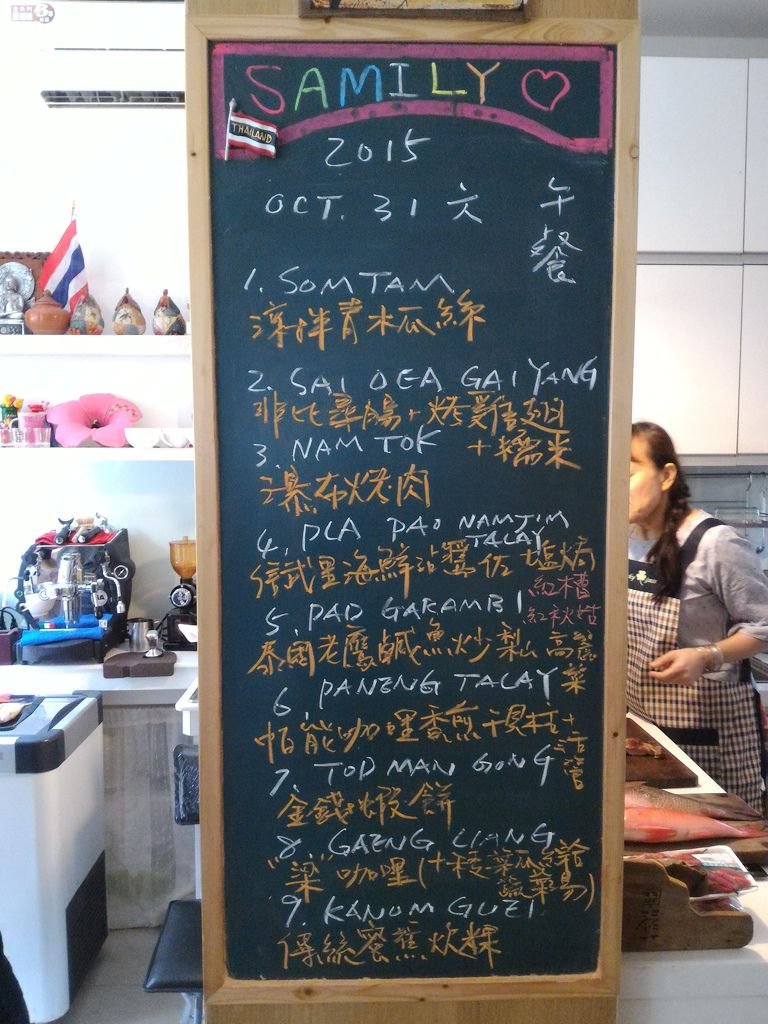 SAMILY
THAILAND
2015
OCT. 31 六 午餐
1. SOM TAM
涼拌青木瓜絲
2. SAI OEA GAI YANG
香腸+烤雞翅
+糯米
3. NAM TOK
瀑布烤肉
4. PLA PAO NAMJIM TALAY
泰式海鮮沾醬佐塩焗
紅糟
紅秋姑
5. PAD GARAMBI
泰國老鷹鹹魚炒梨山高麗菜
6. PANENG TALAY
帕能咖哩香煎干貝柱+
7. TOD MAN GONG
金錢蝦餅
8. GAENG LIANG
咖哩
9. KANOM GUEI
傳統蜜蕉炊粿